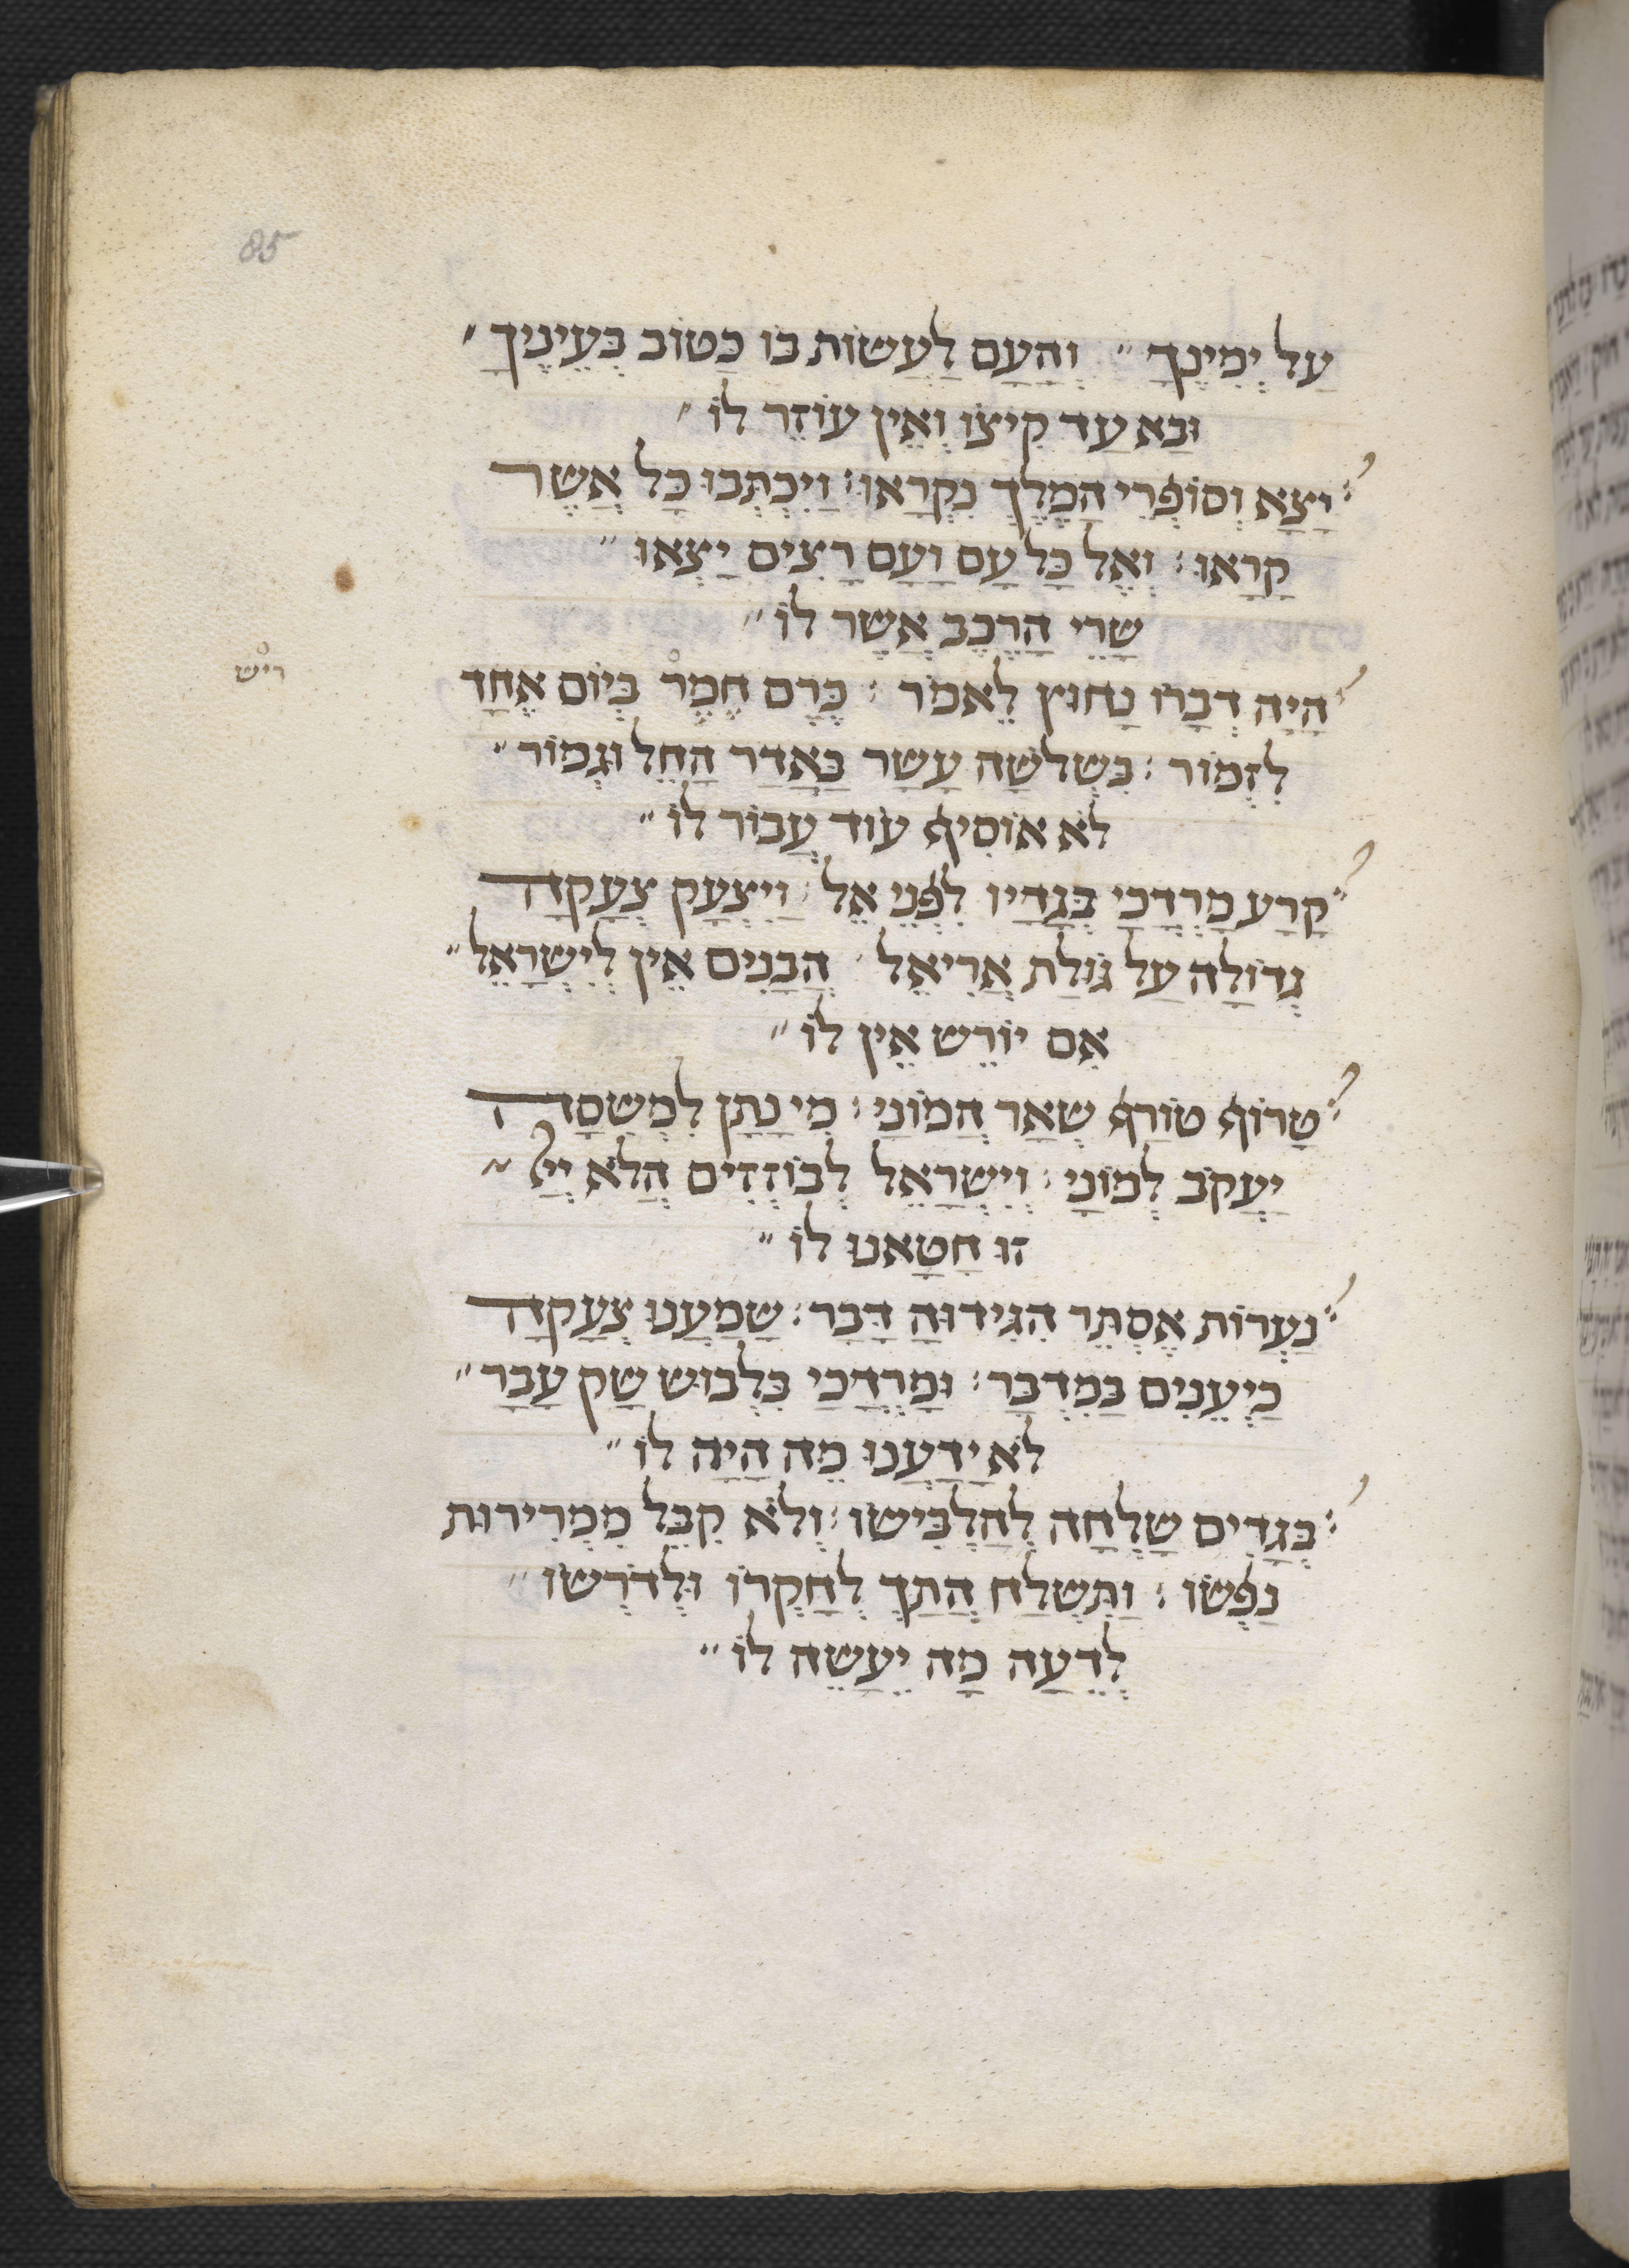 85
עַל יְמִינֶךָ ״ וְהָעָם לַעֲשׂוֹת בּוֹ כַּטוֹב בְּעֵינֶיךָ ״
וּבַא עַד קִיצוֹ וְאֵין עוֹזֵר לוֹ ״
יָצָא וְסוֹפְרֵי הַמֶלֶךְ נִקְרָאוּ : וַיִכְתְבוּ כָּל אֲשֶׁר
קָרָאוּ : וְאֶל כָּל עָם וָעָם רָצִים יַצְאוּ ״
שָׂרֵי הָרֶכֶב אֲשֶׁר לוֹ ״
הָיָה דְבָרוֹ נָחוּץ לֵאמֹר : כֶּרֶם חֶמֶר בְּיוֹם אֶחָד
ריש
לִזְמוֹר : בִּשְׁלֹשָׁה עָשָׂר בַּאֲדַר הָחֵל וּגְמוֹר ״
לֹא אוֹסִיף עוֹד עֲבוֹר לוֹ ״
קָרַע מָרְדֳכַי בְּגָדָיו לִפְנֵי אֵל : וַיִצְעַק צְעָקָה
גְדוֹלָה עַל גוֹלַת אֲרִיאֵל : הֲבָנִים אֵין לְיִשְׂרָאֵל ״
אִם יוֹרֵשׁ אֵין לוֹ ״
טָרוֹף טוֹרַף שְׁאָר הֲמוֹנַי : מִי נָתַן לִמְשִׁסָה
יַעֲקֹב לְמוֹנַי : וְיִשְׂרָאֵל לְבוֹזְזִים הֲלֹא יְיָ ~
זוּ חָטָאנוּ לוֹ ״
נַעֲרוֹת אֶסְתֵר הִגִידוּהָ דָּבָר : שָׁמַעֲנוּ צְעָקָה
כַּיְעֵנִים בַּמִדְבָּר : וּמָרְדֳכַי בִּלְבוּשׁ שַׂק עָבַר ״
לֹא יָדַעֲנוּ מֶה הָיָה לוֹ ״
בְּגָדִים שָׁלְחָה לְהַלְבִּישׁוֹ : וְלֹא קִבֵּל מִמְרִירוּת
נַפְשׁוֹ : וַתִּשְׁלַח הֲתַךְ לְחָקְרוֹ וּלְדוֹרְשׁוֹ ״
לְדֵעָה מַה יֵעָשֶׂה לוֹ ״